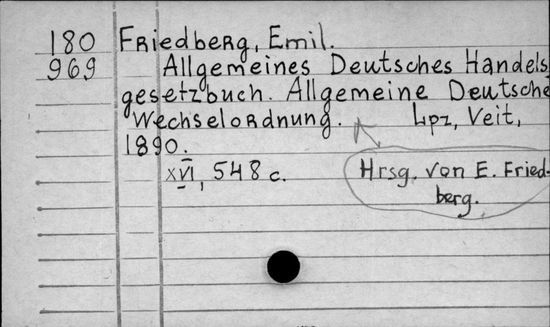 180 Friedberg, Emil.
969 Allgemeines Deutsches Handels
gesetzbuch. Allgemeine Deutsche
Wechselordnung. Lpz, Veit,
1890.
XVI, 548 c.
Hrsg. von E. Fried-
berg.